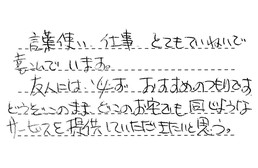 言葉使い 仕事 とてもていねいで
喜んでいます。
友人には 必ず おすすめのつもりです
どうぞこのまま どこのお宅でも 同じような
サービスを提供していただきたいと思う。